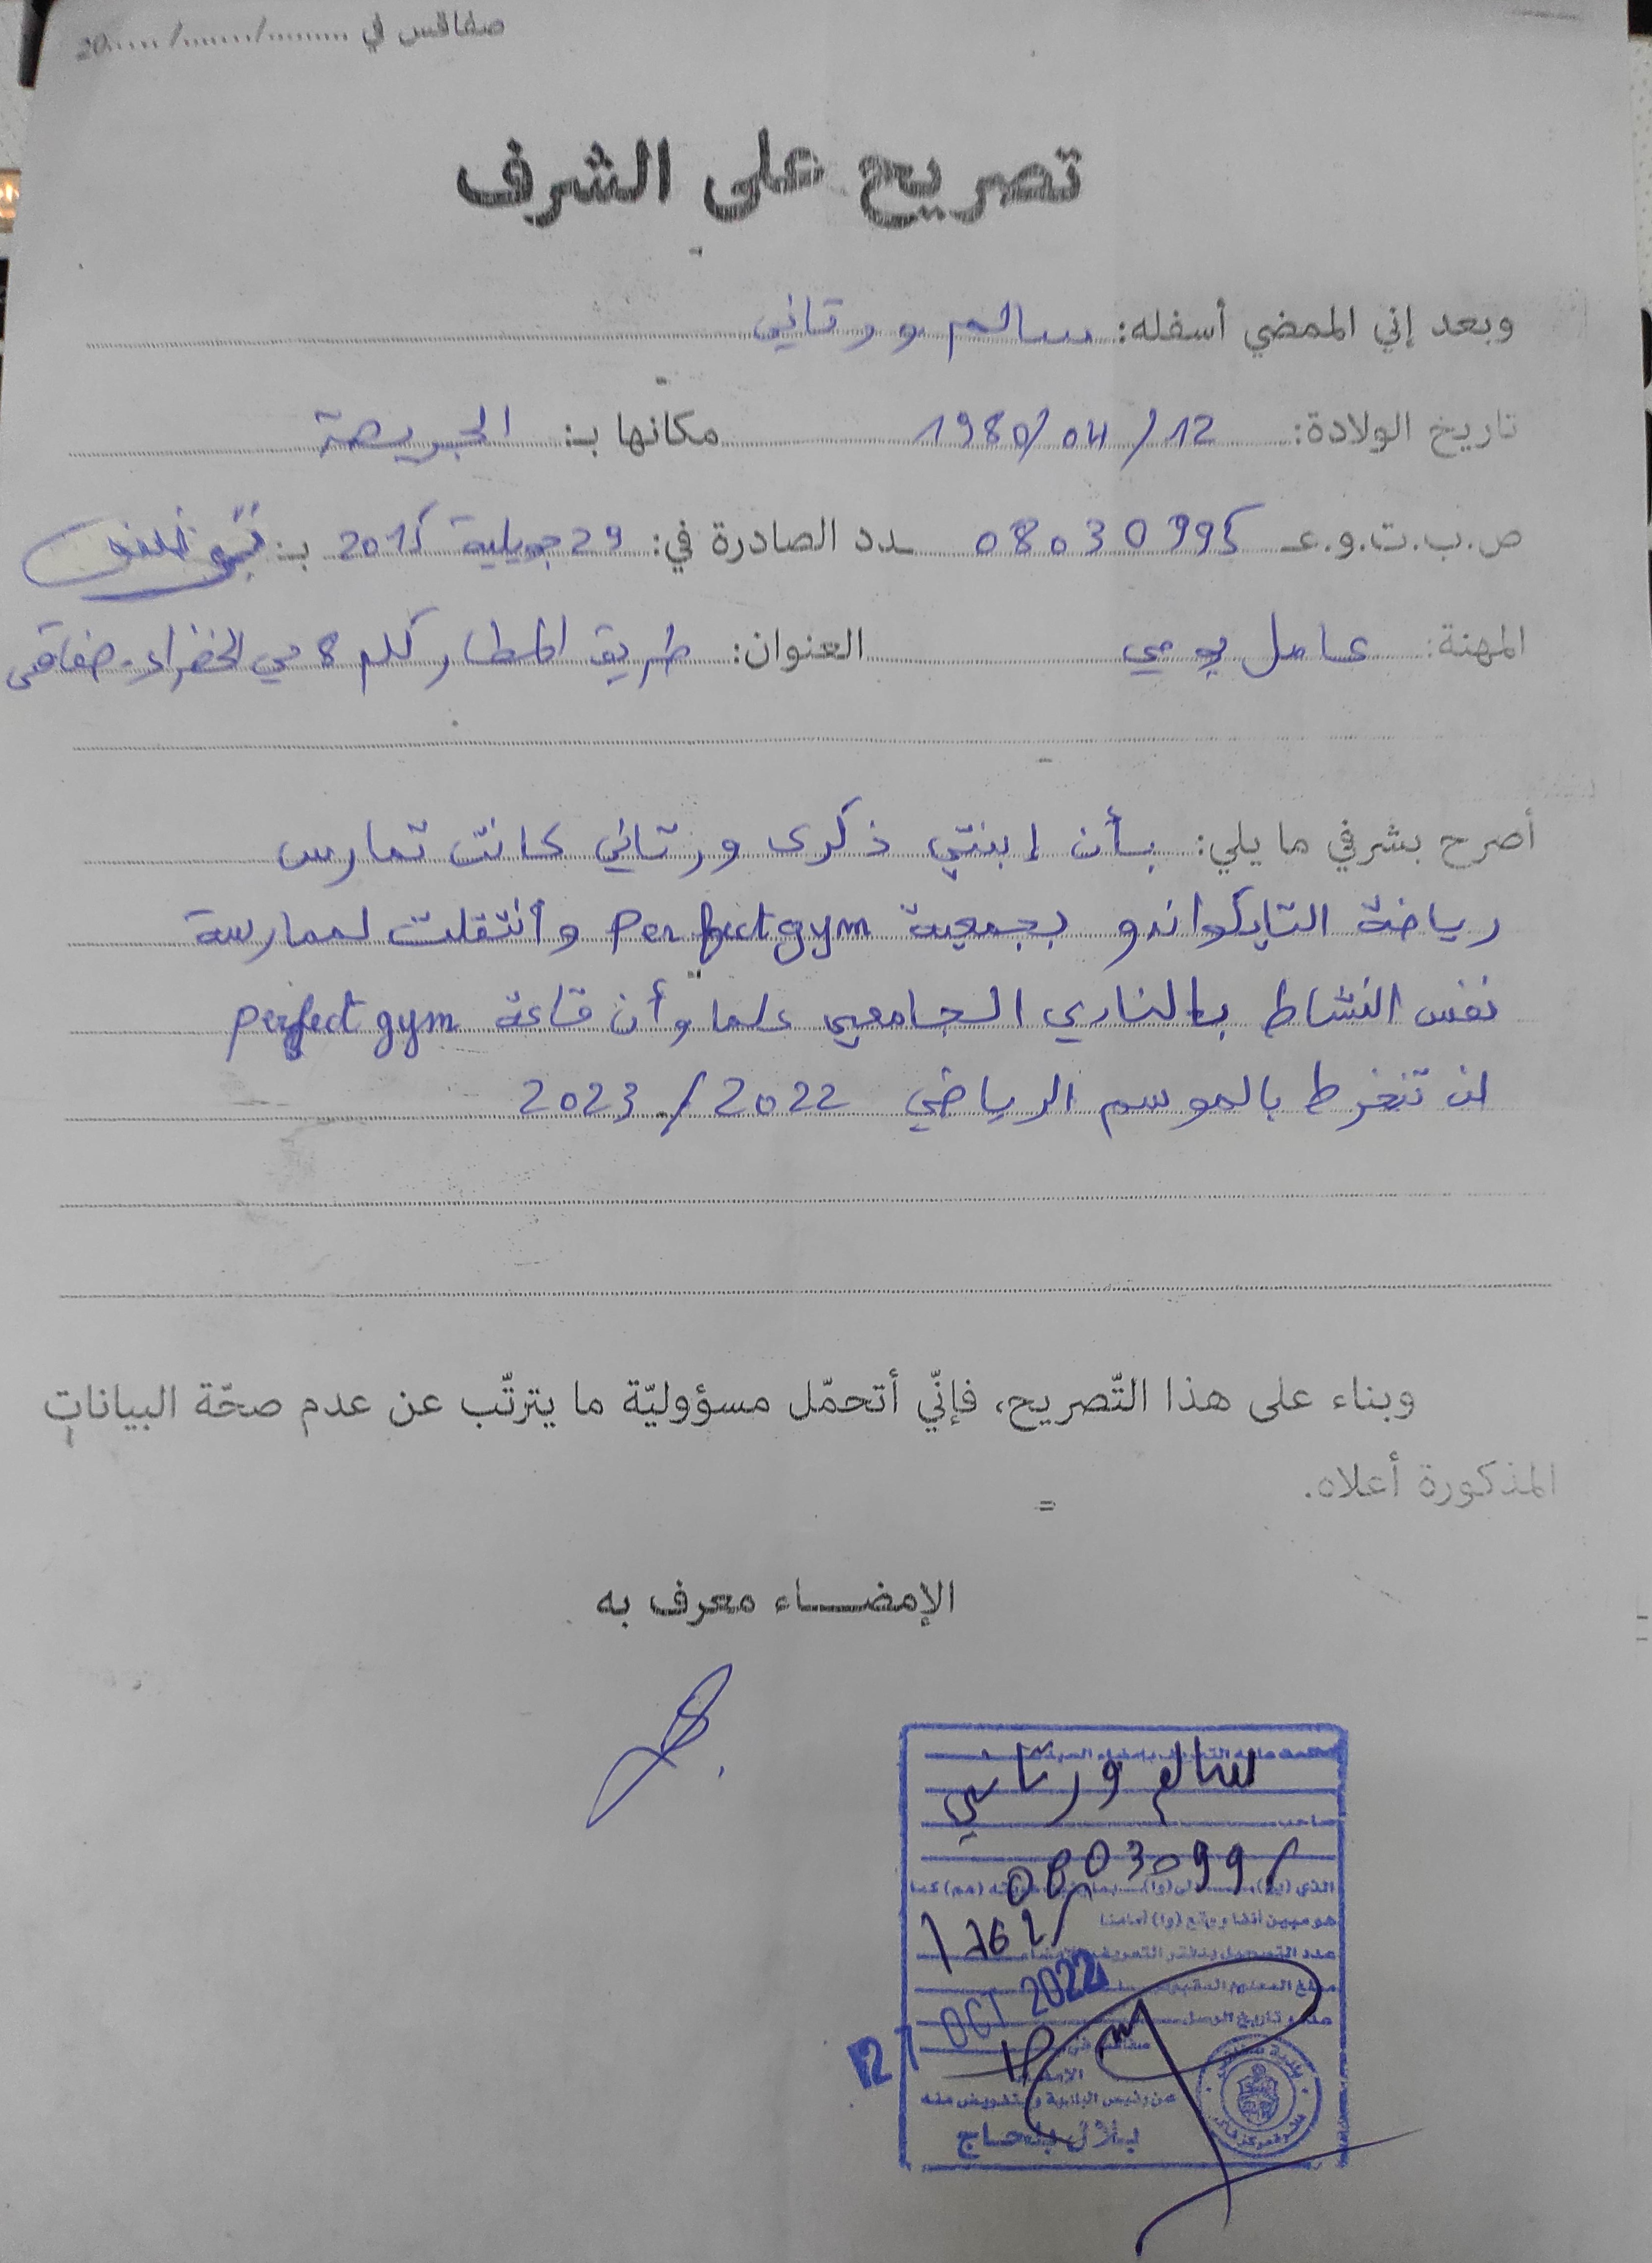 صفاقس في ........./......../......20
تصريح على الشرف
وبعد إني الممضي أسفله: سالم ورتاني
تاريخ الولادة: 12/04/1980 مكانها بـ: الجريصة
ص.ب.ت.و.عـ 08030995 ـدد الصادرة في: 29 جويلية 2015 بـ: تونس
المهنة: عامل يومي العنوان: طريق المطار كلم 8 حي الخضراء - صفاقس
أصرح بشرفي ما يلي: بأن إبنتي ذكرى ورتاني كانت تمارس
رياضة التايكواندو بجمعية Perfect gym وانتقلت لممارسة
نفس النشاط بالنادي الجامعي علما وأن قاعة perfect gym
لن تنخرط بالموسم الرياضي 2022/2023
وبناء على هذا التّصريح، فإنّي أتحمّل مسؤوليّة ما يترتّب عن عدم صحّة البيانات
المذكورة أعلاه.
الإمضـــاء معرف به
سالم ورتاني
صاحب
08030995
هو مبين أعلاه ووقع (وا) أمامنا
27 OCT 2022
الإمضاء
عن رئيس البلدية وبتفويض منه
بلال بلحاج